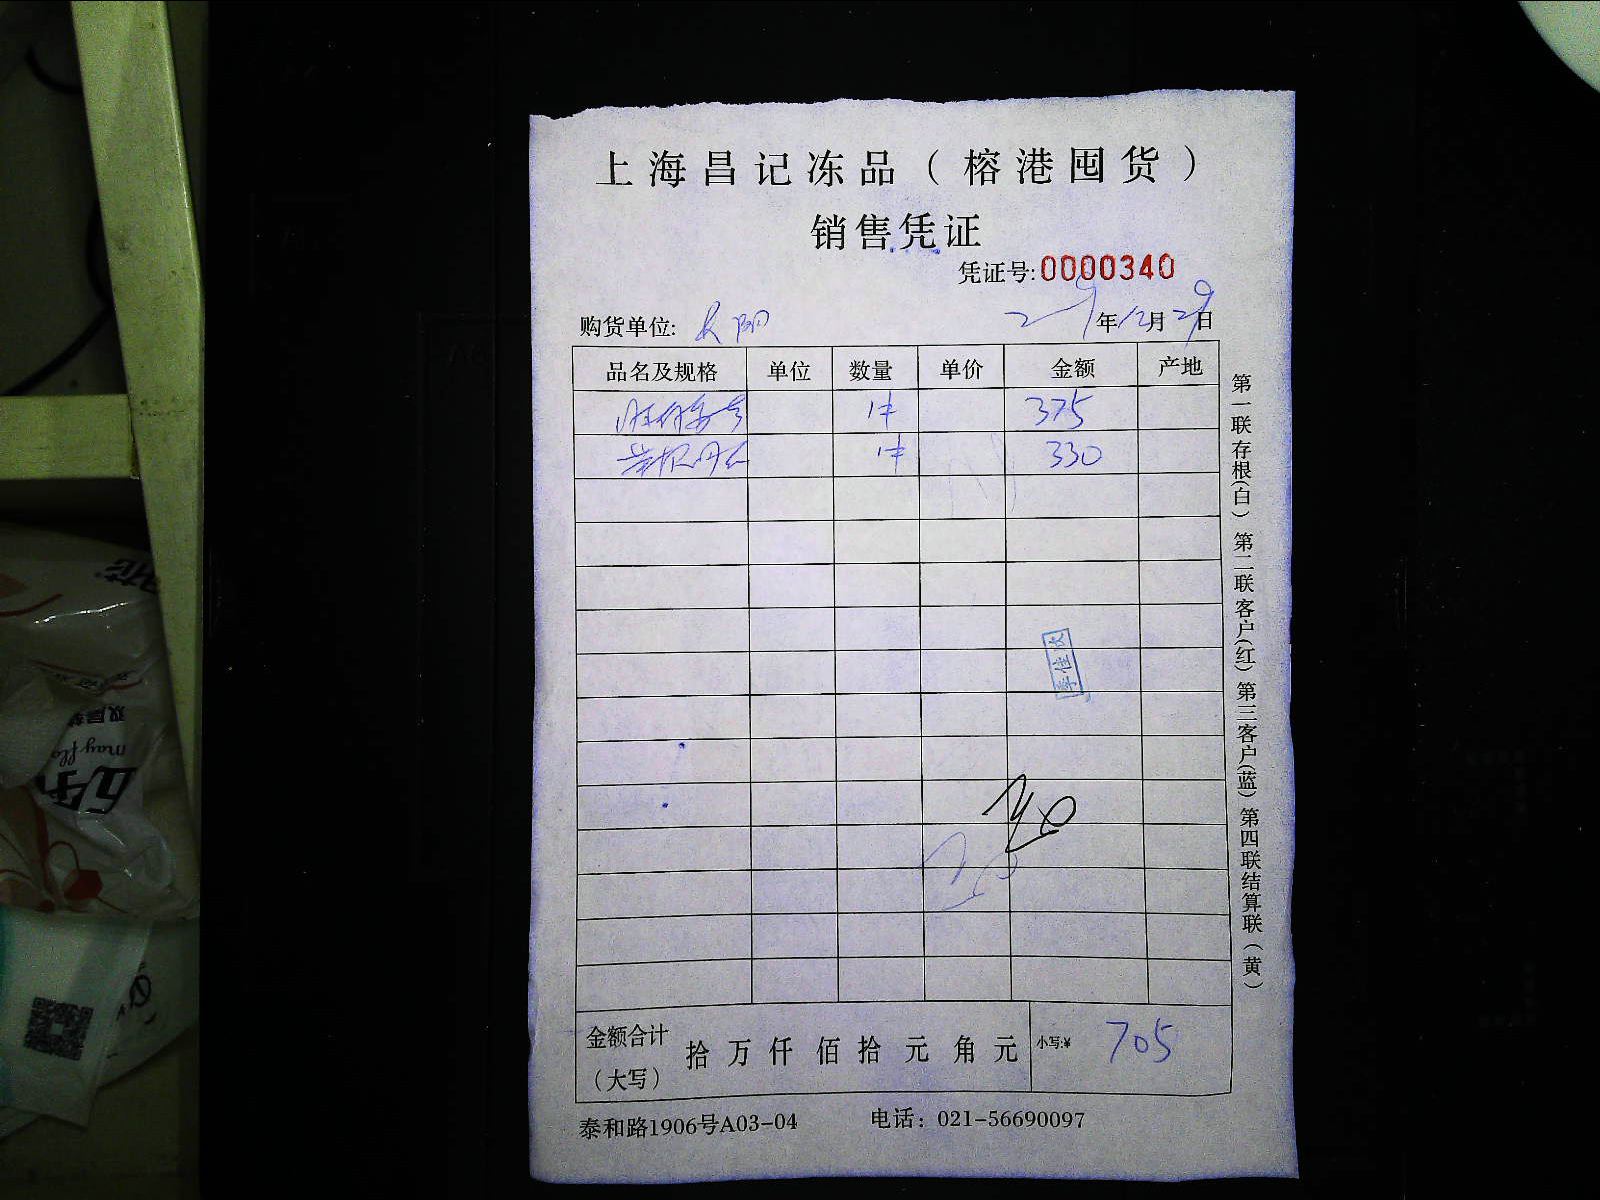 上海昌记冻品（榕港囤货）
销售凭证
凭证号:0000340
购货单位: 年12月29日
品名及规格 单位 数量 单价 金额 产地
1件 375
1件 330
李佳欣
金额合计（大写） 拾 万 仟 佰 拾 元 角 元 小写:¥ 705
泰和路1906号A03-04 电话：021-56690097
第一联存根(白) 第二联客户(红) 第三客户(蓝) 第四联结算联（黄）
双层
may flo